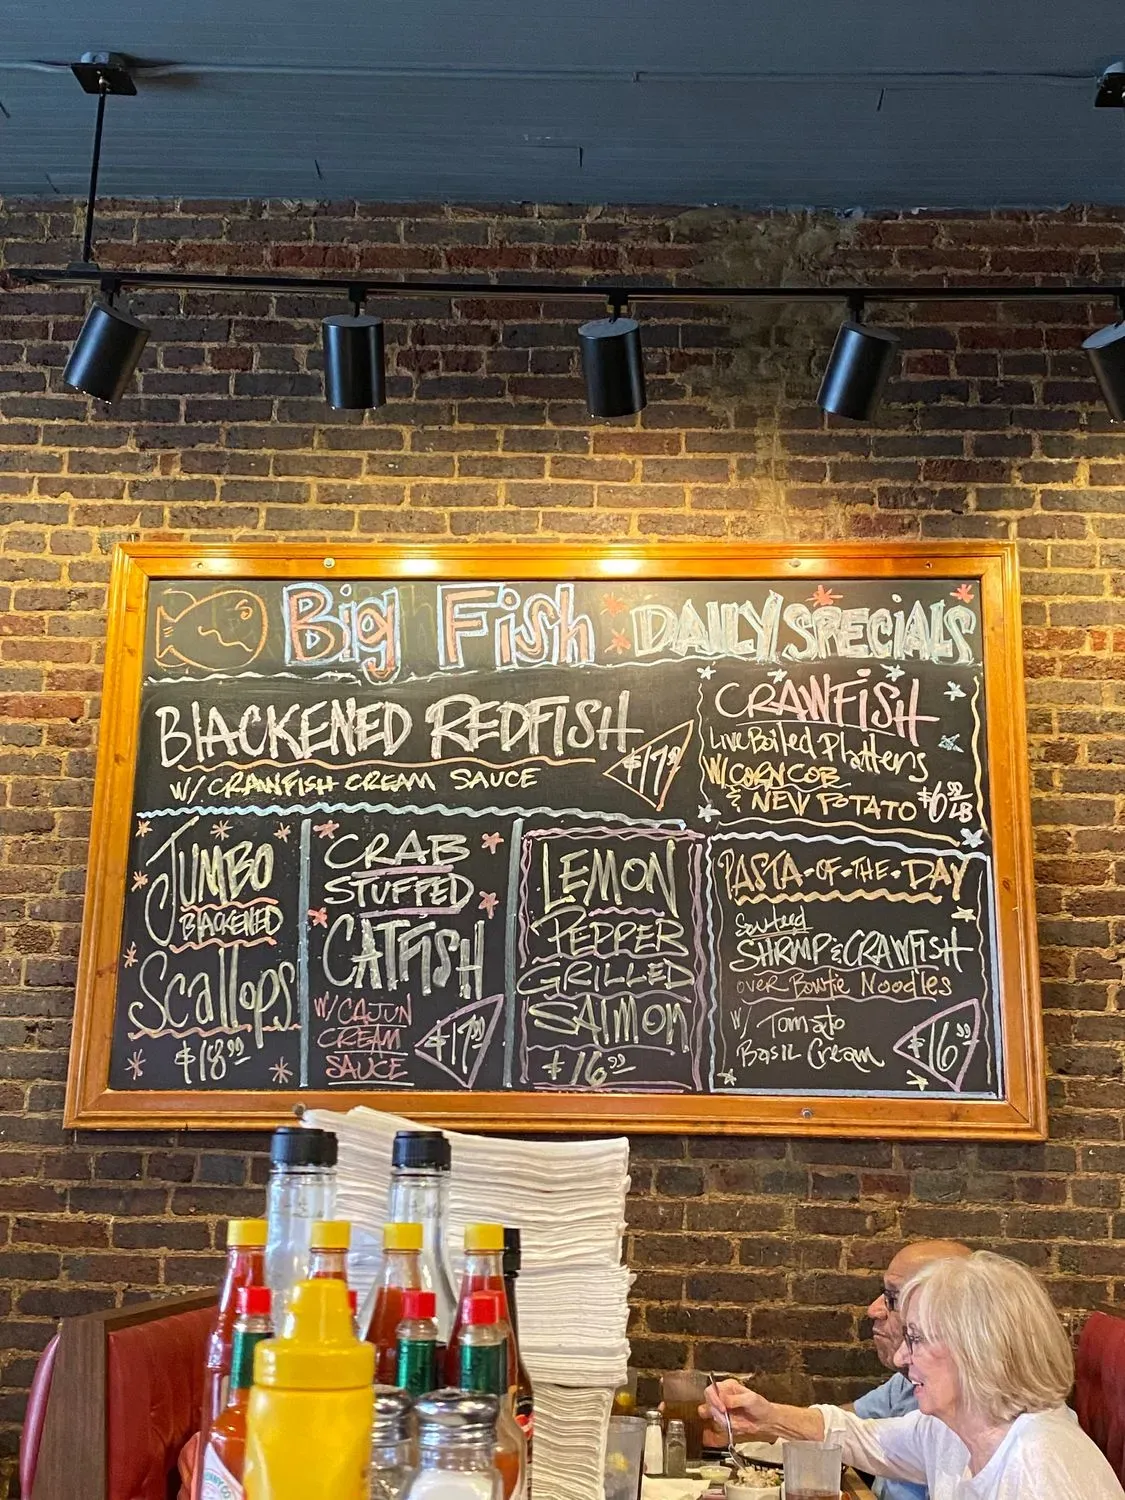 Big Fish DAILY SPECIALS
BLACKENED REDFISH
W/ CRAWFISH CREAM SAUCE
$17.99
CRAWFISH
Live Boiled Platters
W/ CORN COB
& NEW POTATO $6.99/LB
JUMBO
BLACKENED
Scallops
$18.99
CRAB
STUFFED
CATFISH
W/ CAJUN
CREAM
SAUCE
$17.99
LEMON
PEPPER
GRILLED
SALMON
$16.99
PASTA-OF-THE-DAY
Sauteed
SHRMP & CRAWFISH
over Bowtie Noodles
W/ Tomato
Basil Cream
$16.99